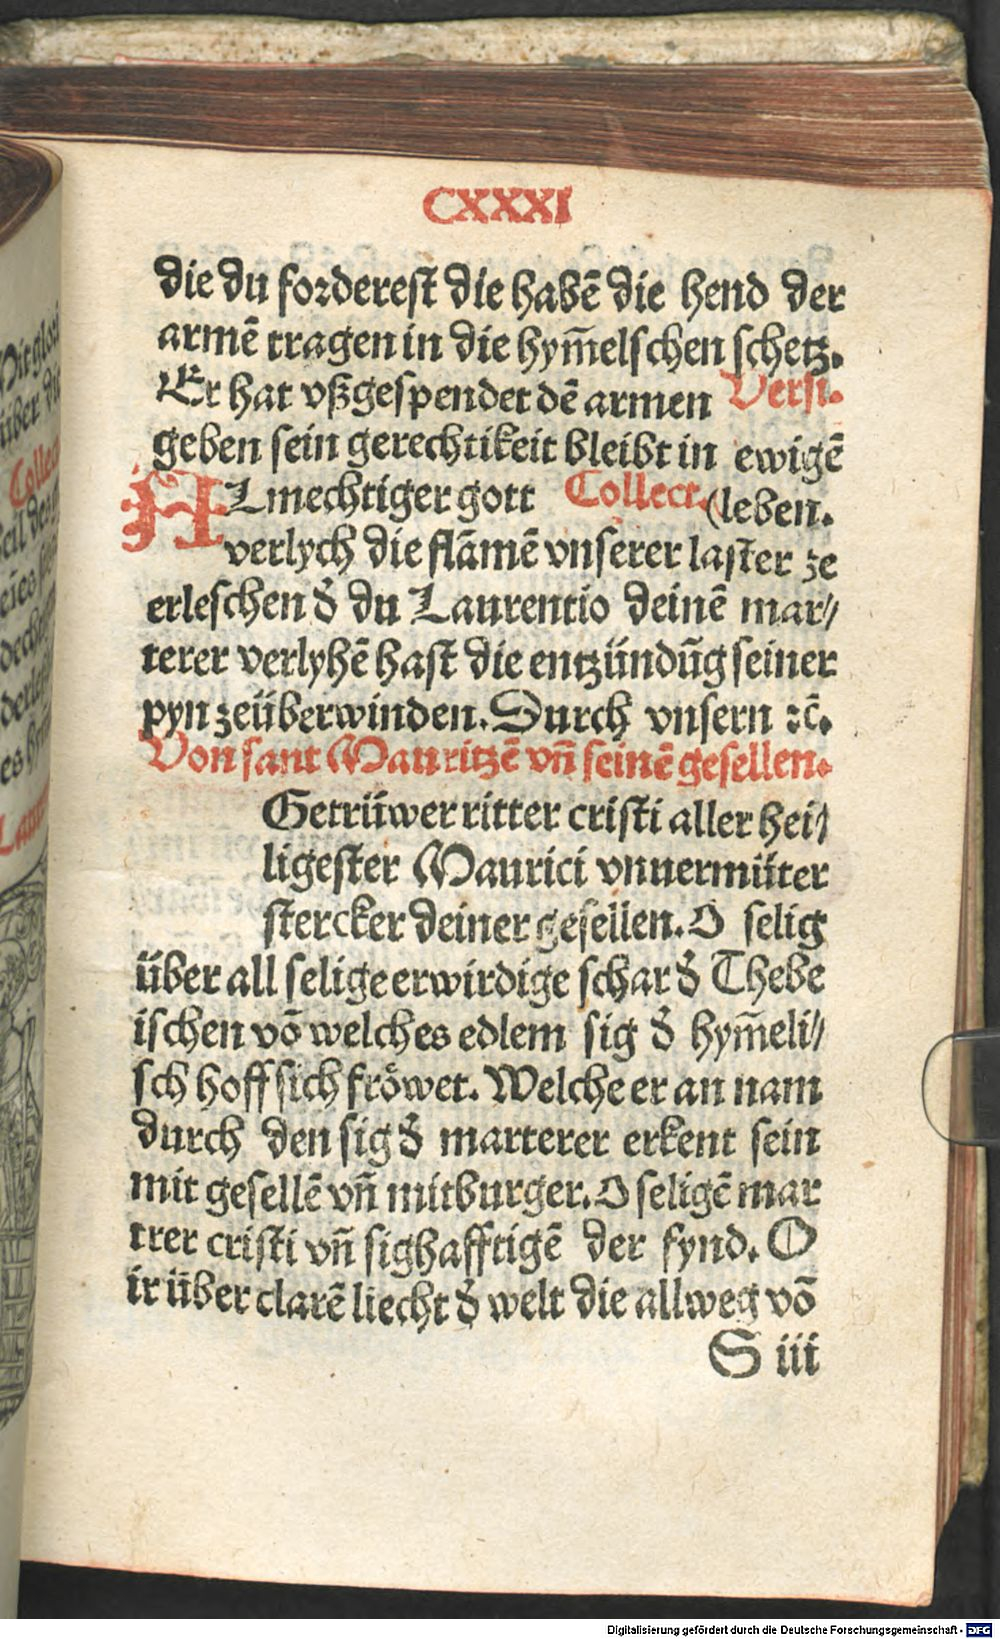 CXXXI
die du forderest die habē die hend der
armē tragen in die hym̄elschen schetz.
Er hat vßgespendet dē armen Versi.
geben sein gerechtikeit bleibt in ewigē
ALmechtiger gott Collect. (leben.
verlych die flāmē vnserer laster ze
erleschen d̄ du Laurentio deinē mar//
terer verlyhē hast die entzündūg seiner
pyn zeüberwinden. Durch vnsern ⁊c̄.
Von sant Mauritzē vn̄ seinē gesellen.
Getrüwer ritter cristi aller hei/
ligester Maurici vnuermüter
stercker deiner gesellen. O selig
über all selige erwirdige schar d̄ Thebe
ischen vō welches edlem sig d̄ hym̄eli//
sch hoff sich fröwet. Welche er an nam
durch den sig d̄ marterer erkent sein
mit gesellē vn̄ mitburger. O seligē mar
trer cristi vn̄ sighafftigē der fynd. O
ir über clarē liecht d̄ welt die allweg vō
S iii
Collec
Digitalisierung gefördert durch die Deutsche Forschungsgemeinschaft - DFG